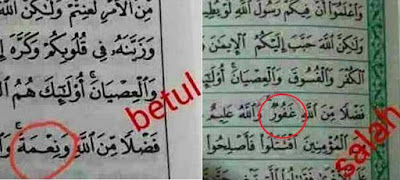 مِّنَ الْأَمْرِ لَعَنِتُّمْ وَلَٰكِنَّ اللَّهَ
وَزَيَّنَهُ فِي قُلُوبِكُمْ وَكَرَّهَ
وَالْعِصْيَانَ ۚ أُولَٰئِكَ هُمُ
فَضْلًا مِّنَ اللَّهِ وَنِعْمَةً
betul
وَاعْلَمُوا أَنَّ فِيكُمْ رَسُولَ اللَّهِ
وَلَٰكِنَّ اللَّهَ حَبَّبَ إِلَيْكُمُ الْإِيمَٰنَ
الْكُفْرَ وَالْفُسُوقَ وَالْعِصْيَانَ ۚ
فَضْلًا مِّنَ اللَّهِ غَفُورٌ ۚ وَاللَّهُ عَلِيمٌ
الْمُؤْمِنِينَ اقْتَتَلُوا فَأَصْلِحُوا
salah